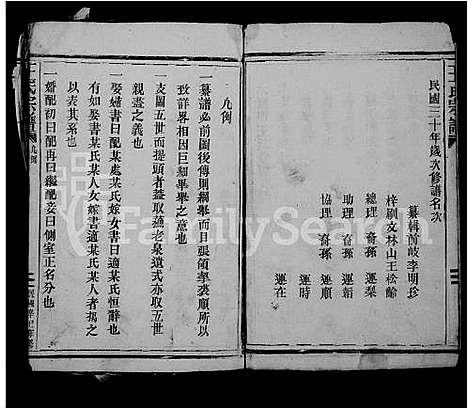 王氏宗譜
民國三十年歲次修譜名次
纂輯前岐李明珍
梓刷文林山王松齡
總理 裔孫 運梨
助理 裔孫 運韜
協理 裔孫 運順
運時
運在
凡例
一纂譜必前圖後傳則綱舉而目張領挈裘順所以
致詳畧相因巨細畢舉之意也
一支圖五世而提頭者蓋取蘇老泉遺式亦取五世
親盡之義也
一娶婦書曰配某處某氏嫁女書曰適某氏恒辭也
如有娶書某氏某人女嫁書適某氏某人者摘以
以表其系也
一婚配初曰配再曰繼配妾曰側室正名分也
王氏宗譜
凡例
FamilySearch